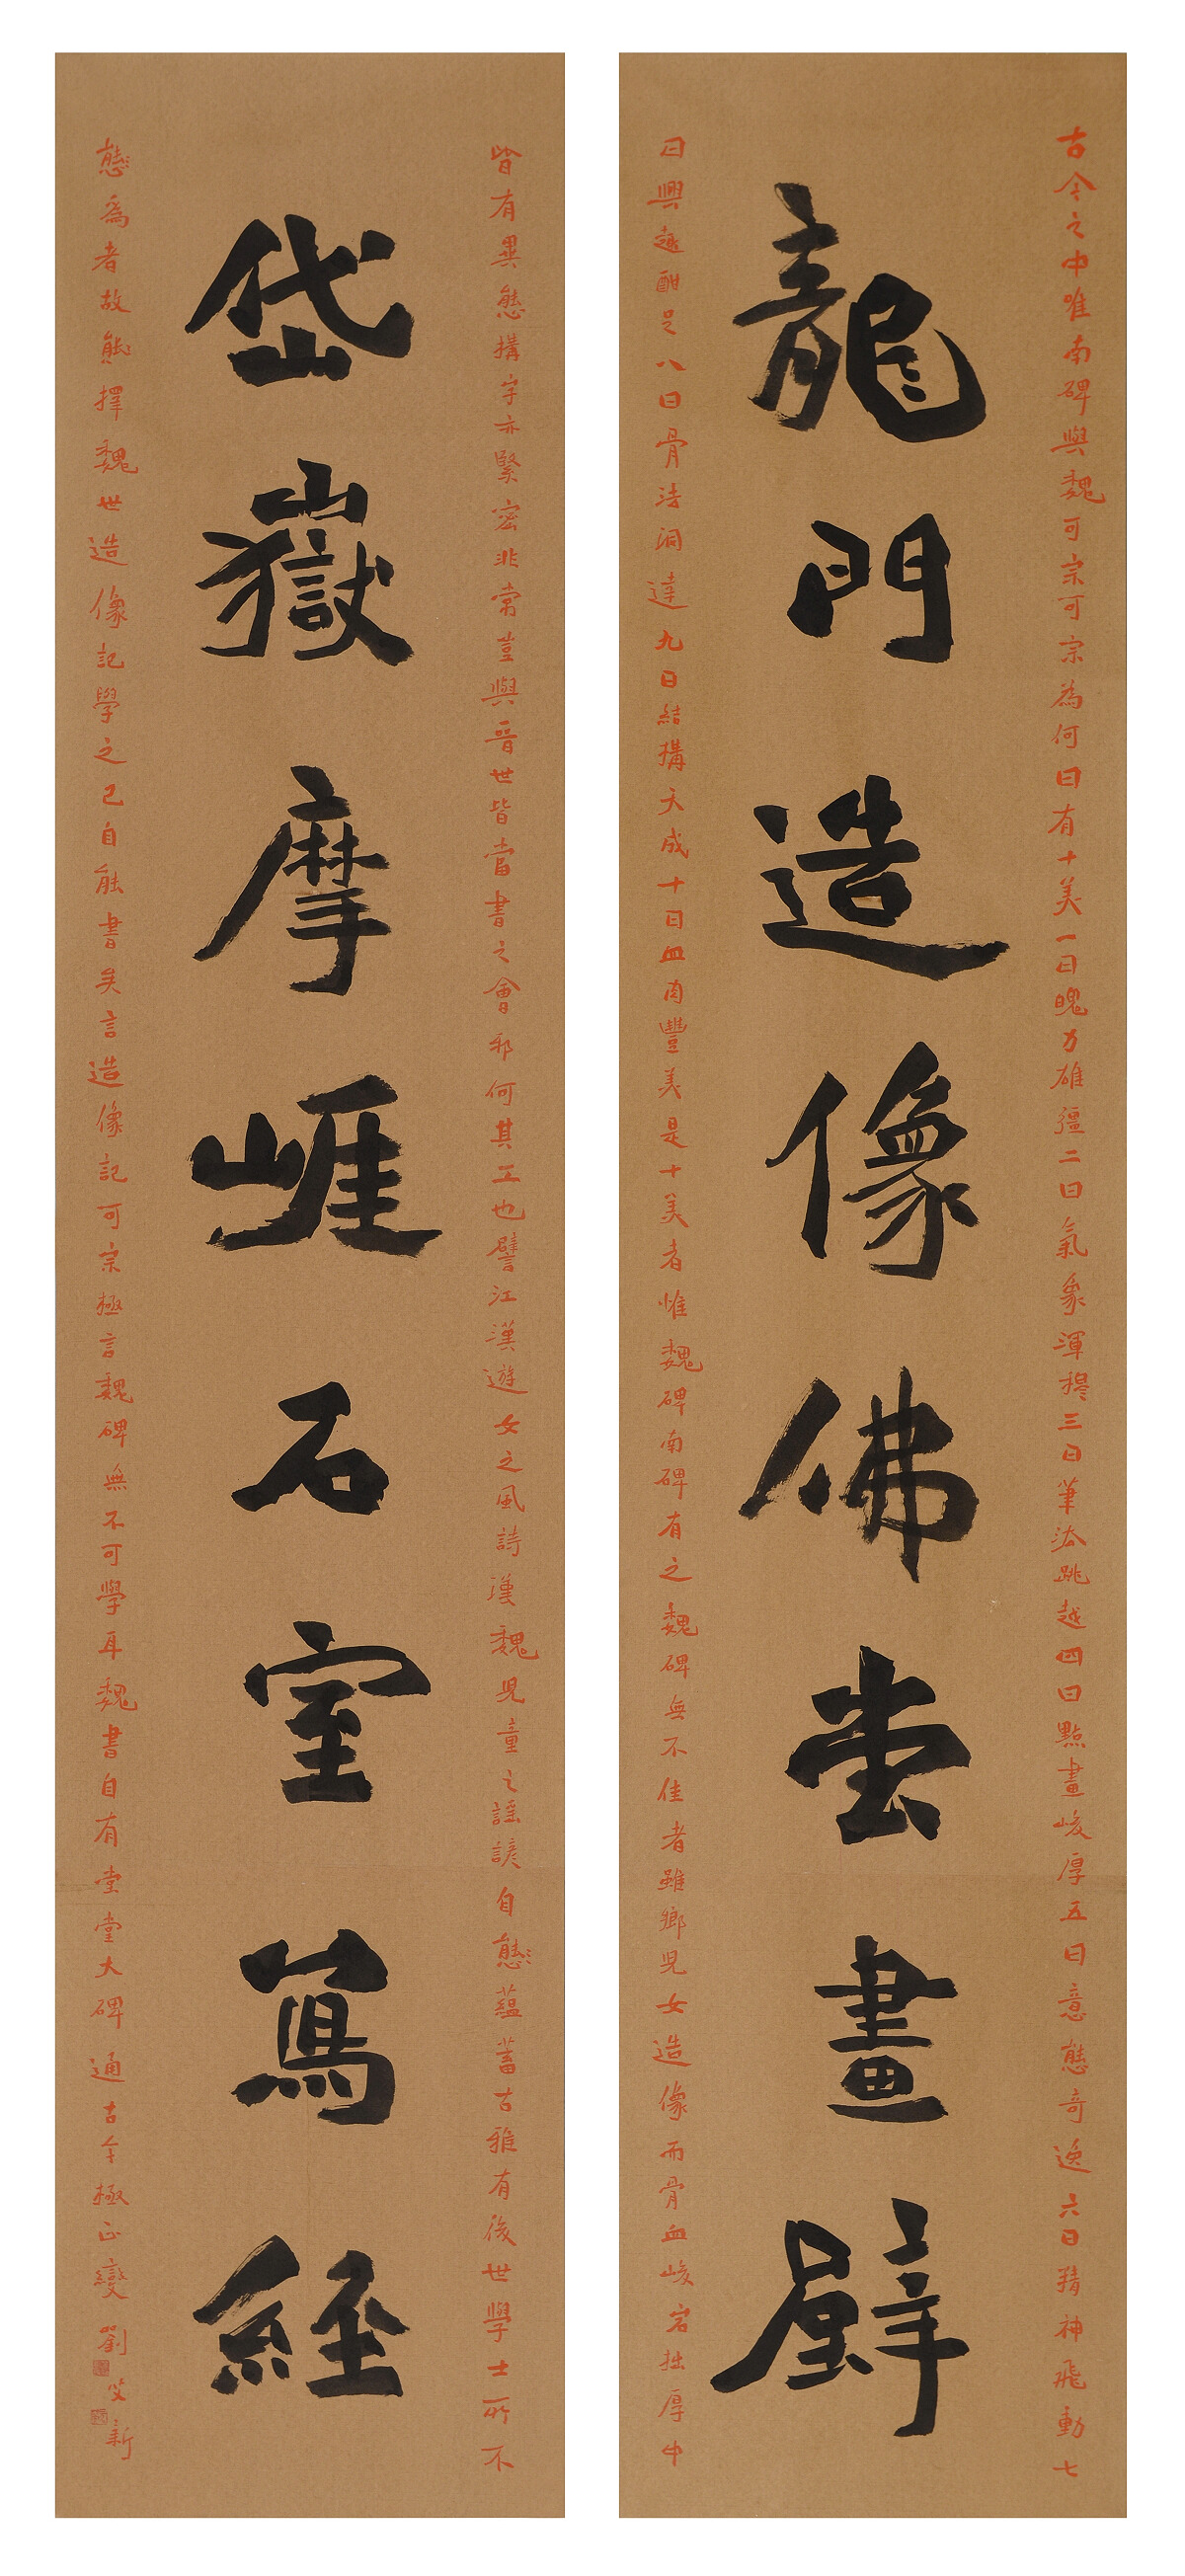 古今之中唯南碑與魏可宗可宗為何曰有十美一曰魄力雄彊二曰氣象渾穆三曰筆法跳越四曰點畫峻厚五曰意態奇逸六曰精神飛動七
龍門造像佛堂畫壁
曰興趣酣足八曰骨法洞達九曰結構天成十曰血肉豐美是十美者惟魏碑南碑有之魏碑無不佳者雖鄉兒女造像而骨血峻宕拙厚中
皆有異態構字亦緊密非常豈與晉世皆當書之會邪何其工也譬江漢遊女之風詩漢魏兒童之謠諺自態蘊蓄古雅有後世學士所不
岱嶽摩崕石室寫經
態為者故能擇魏世造像記學之已自能書矣言造像記可宗極言魏碑無不可學耳魏書自有堂堂大碑通古今極正變劉艾新